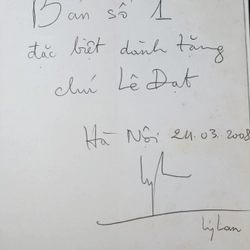 Bản số 1
đặc biệt dành tặng
chú Lê Đạt
Hà Nội 24.03.2008
Ly
LyLan